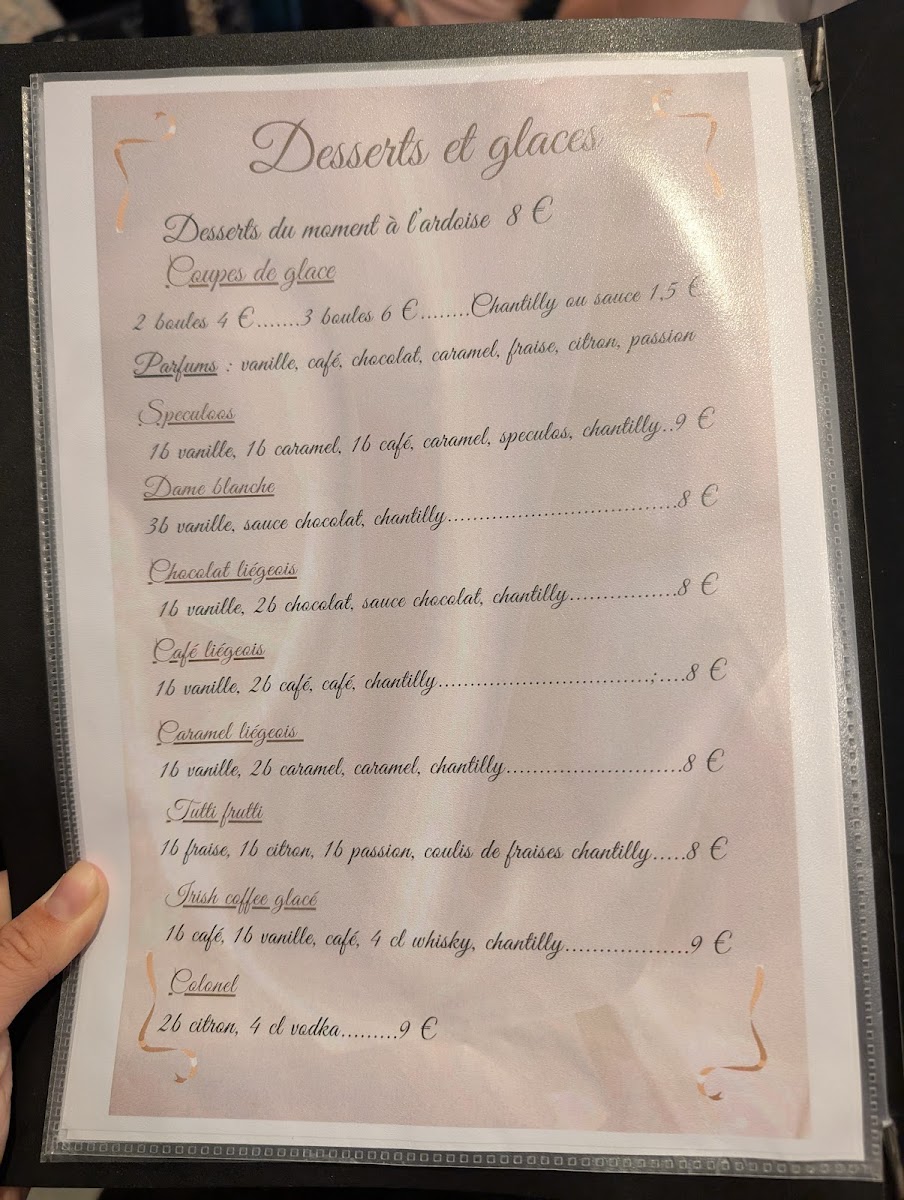 Desserts et glaces
Desserts du moment à l'ardoise 8 €
Coupes de glace
2 boules 4 €.......3 boules 6 €........Chantilly ou sauce 1,5 €
Parfums : vanille, café, chocolat, caramel, fraise, citron, passion
Speculoos
1b vanille, 1b caramel, 1b café, caramel, speculos, chantilly..9 €
Dame blanche
3b vanille, sauce chocolat, chantilly...................................8 €
Chocolat liégeois
1b vanille, 2b chocolat, sauce chocolat, chantilly................8 €
Café liégeois
1b vanille, 2b café, café, chantilly................................;....8 €
Caramel liégeois
1b vanille, 2b caramel, caramel, chantilly..........................8 €
Tutti frutti
1b fraise, 1b citron, 1b passion, coulis de fraises chantilly.....8 €
Irish coffee glacé
1b café, 1b vanille, café, 4 cl whisky, chantilly..................9 €
Colonel
2b citron, 4 cl vodka.........9 €